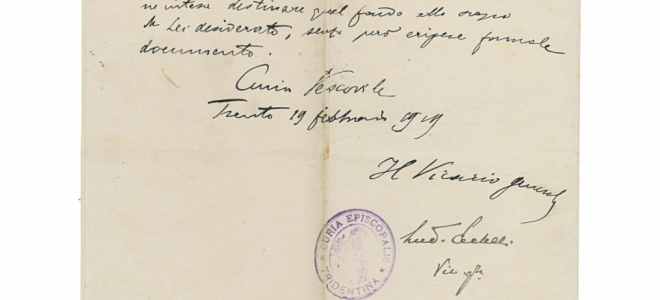 ne intese destinare quel fondo allo scopo
da Lei desiderato, senza però erigere formale
documento.
Curia Vescovile
Trento 19 febbraio 1919
Il Vicario general
CURIA EPISCOPALIS
TRIDENTINA
Lud.
Vic. gle